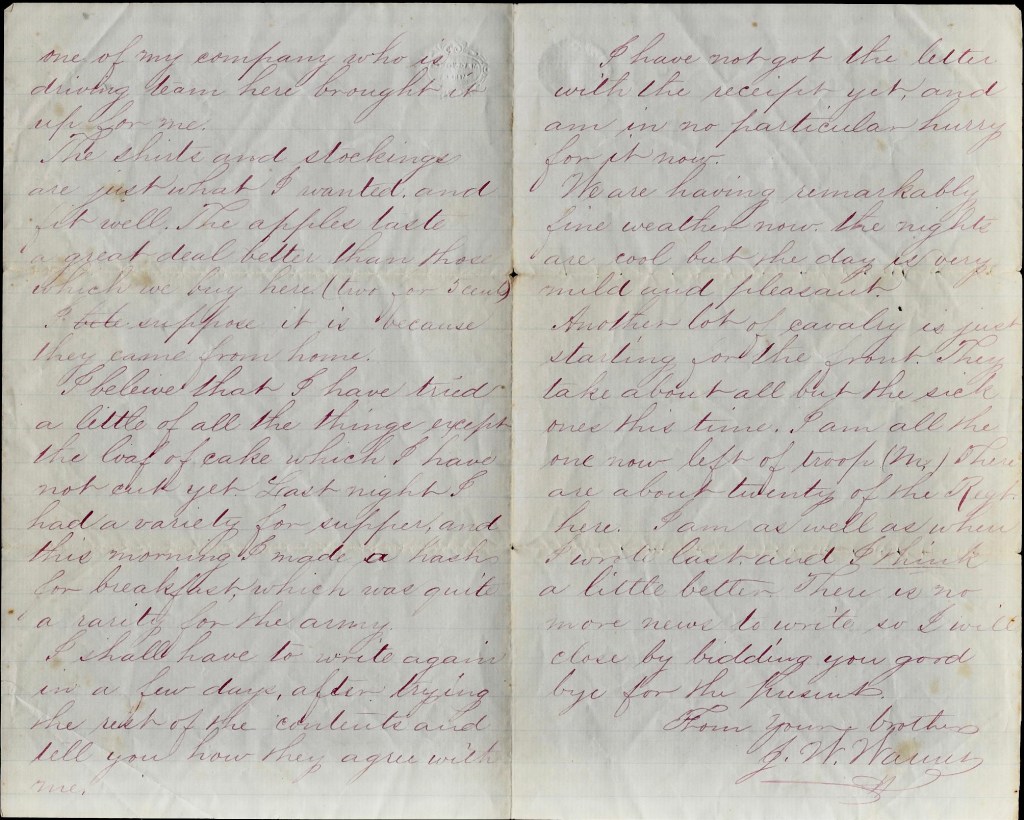 one of my company who is
driving team here brought it
up for me.
The shirts and stockings
are just what I wanted, and
fit well. The apples taste
a great deal better than those
which we buy here. (two for 5 cents)
I suppose it is because
they came from home.
I beleive that I have tried
a little of all the things except
the loaf of cake which I have
not cut yet. Last night I
had a variety for supper, and
this morning I made a hash
for breakfast, which was quite
a rarity for the army.
I shall have to write again
in a few days, after trying
the rest of the contents and
tell you how they agree with
me.
I have not got the letter
with the receipt yet, and
am in no particular hurry
for it now.
We are having remarkably
fine weather now. the nights
are cool but the day is very
mild and pleasant.
Another lot of cavalry is just
starting for the front. They
take about all but the sick
ones this time. I am all the
one now left of troop (M.) There
are about twenty of the Regt.
here. I am as well as when
I wrote last. and I think
a little better. There is no
more news to write so I will
close by bidding you good
bye for the present.
From your brother
J. W. Warner